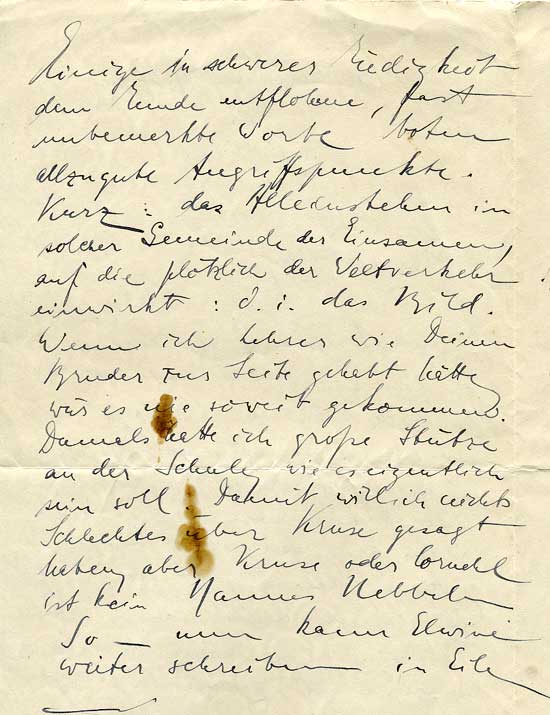 Einige in schwerer Müdigkeit
dem Munde entflohene, fast
unbemerkte Worte boten
allzugute Angriffspunkte.
Kurz: das Alleinstehen in
solcher Gemeinde der Einsamen,
auf die plötzlich der Weltverkehr
einwirkt: d. i. das Bild.
Wenn ich Lehrer wie Deinen
Bruder zur Seite gehabt hätte,
wär es nie soweit gekommen.
Damals hatte ich große Stütze
an der Schule, wie es eigentlich
sein soll. Damit will ich nichts
Schlechtes über Kruse gesagt
haben, aber Kruse oder
ist kein Hannes
So – nun kann Elwine
weiter schreiben in Eile